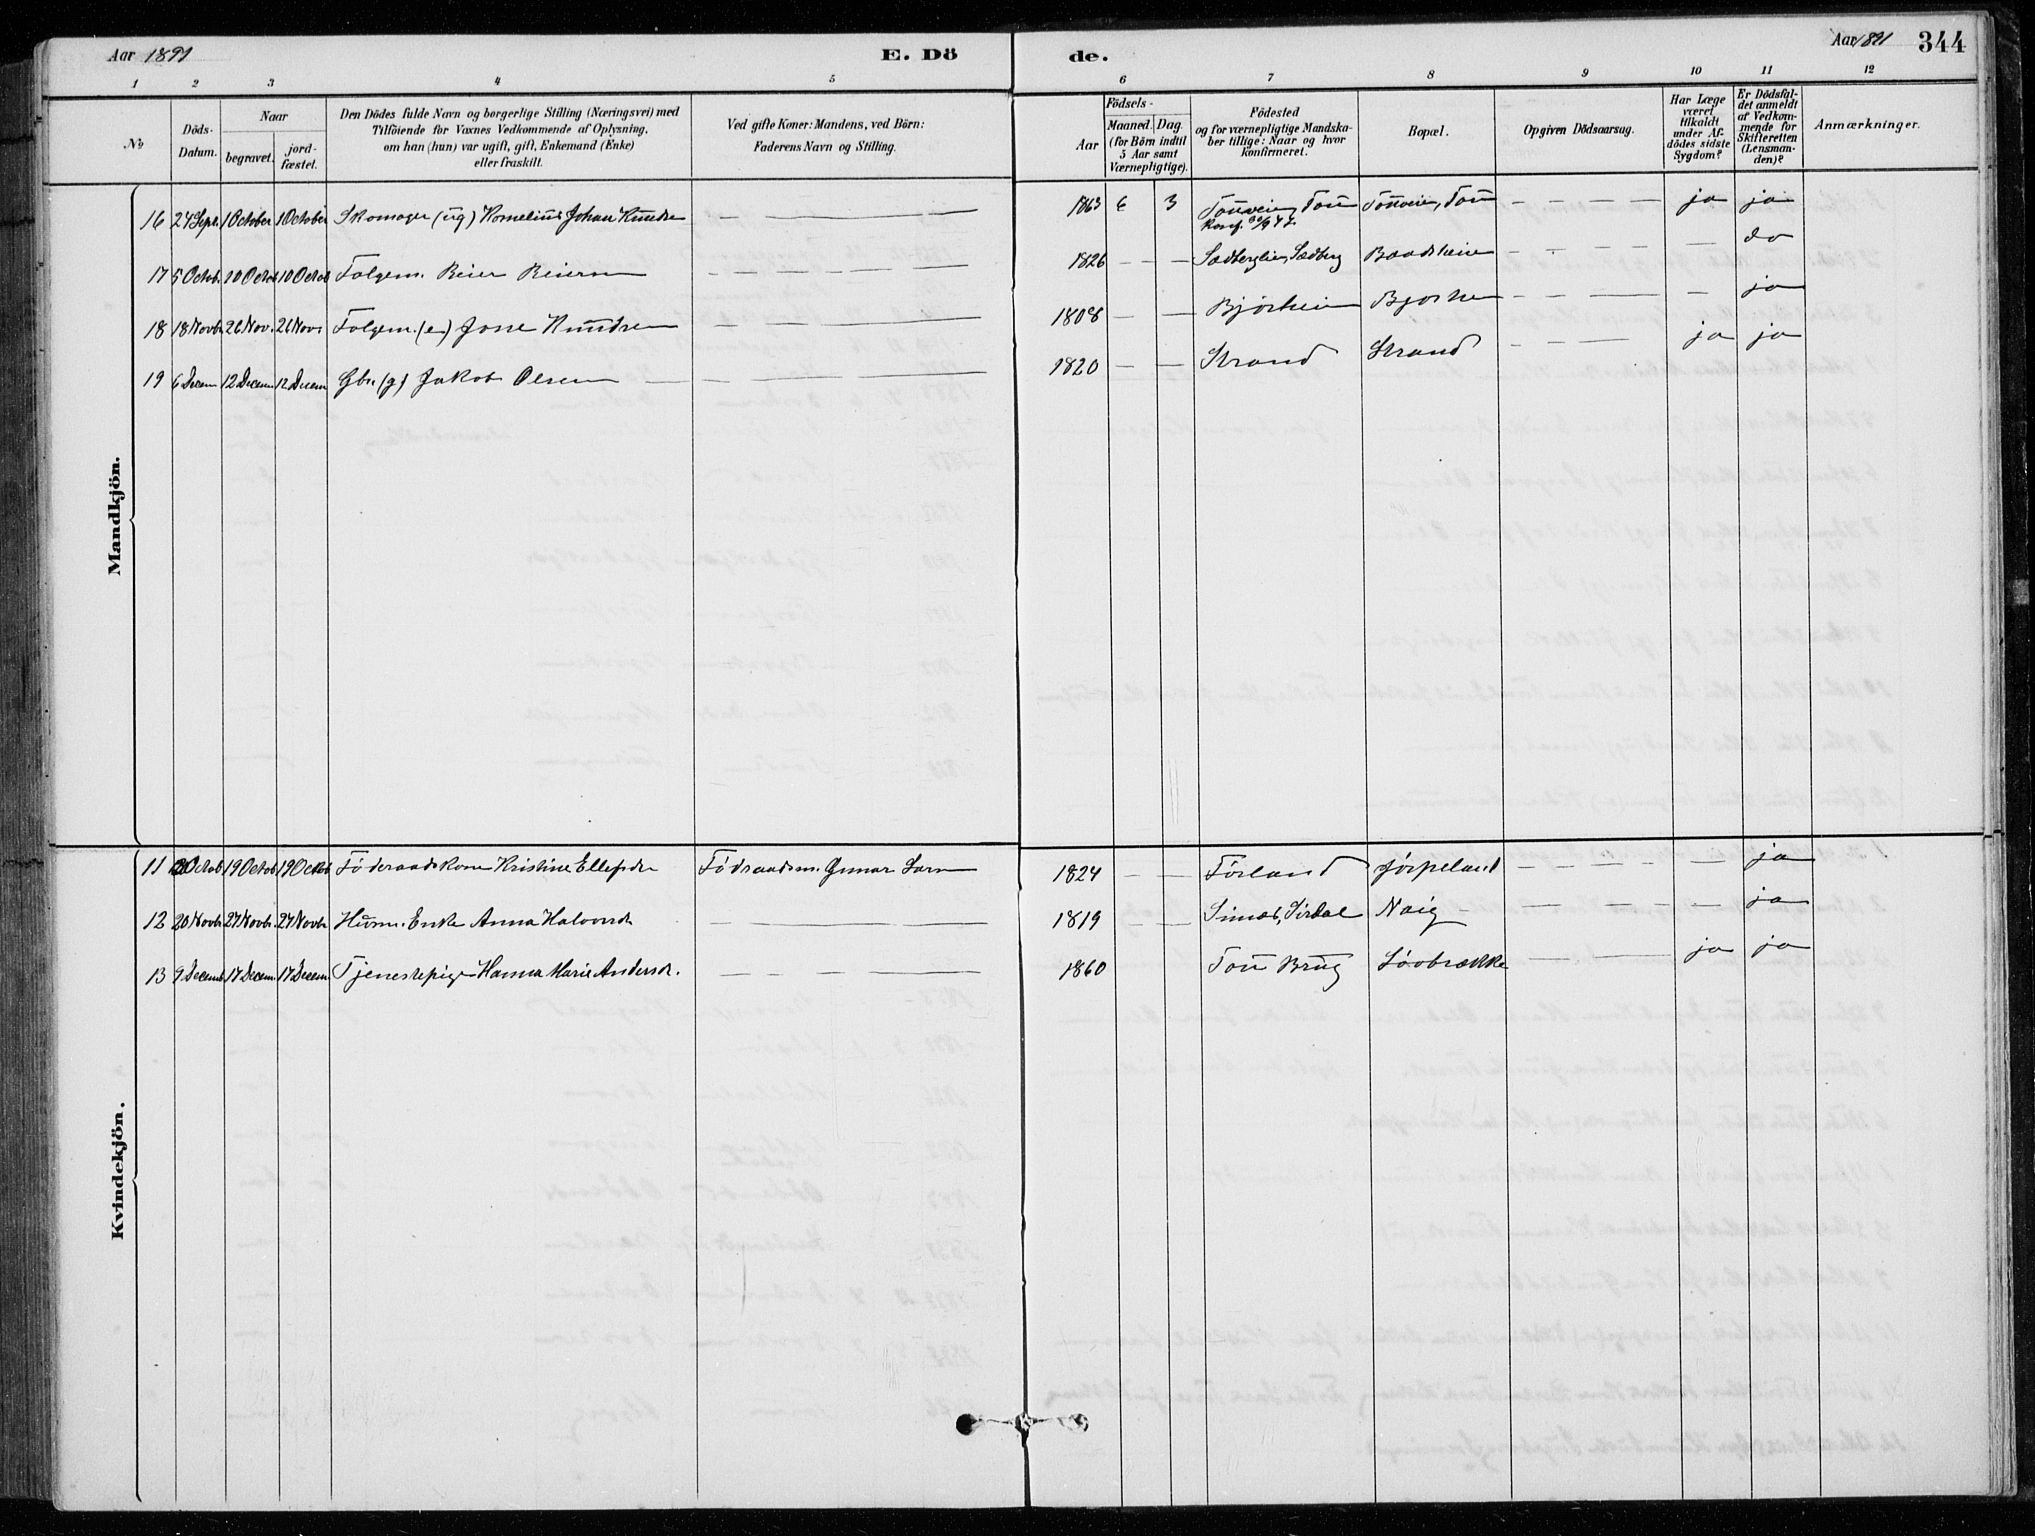 Aar 1891
E. Dö
de.
Aar 1891
344
1 2 3 4 5 6 7 8 9 10 11 12
№
Döds-Datum.
Naar
begravet.
jord-fæstet.
Den Dödes fulde Navn og borgerlige Stilling (Næringsvei) med
Tilföiende for Voxnes Vedkommende af Oplysning,
om han (hun) var ugift, gift, Enkemand (Enke)
eller fraskilt.
Ved gifte Koner: Mandens, ved Börn:
Faderens Navn og Stilling.
Födsels-
Aar
Maaned. Dag.
(for Börn indtil
5 Aar samt
Værnepligtige).
Födested
og for værnepligtige Mandska-
ber tillige: Naar og hvor
konfirmeret.
Bopæl.
Opgiven Dödsaarsag.
Har Læge
været
tilkaldt
under Af-
dödes sidste
Sygdom?
Er Dödsfal-
det anmeldt
af Vedkom-
mende for
Skifteretten
(Lensman-
den)?
Anmærkninger.
Mandkjön.
16 24 Sept. 1 October 1 October Skomager (ug) Kornelius Johan Knudsen — — — 1863 6 3 Touveien, Tou Touveien, Tou — — — ja ja
Konf. 30/9 77.
17 5 Octob. 10 Octob 10 Octob Folgem. Beier Beiersen — — — 1826 — — Sedberglien, Sedberg Baadsheien — — — — do
18 18 Novb. 26 Nov. 26 Nov. Folgem. (e) Jone Knudsen — — — 1808 — — Bjørheim Bjørhe — — — — ja
19 6 Decem 12 Decem 12 Decem Gbr. (g) Jakob Olsen — — — 1820 — — Strand Strand — — — ja ja
Kvindekjön.
11 Octob 19 Octob 19 Octob Føderaadskone Kristine Ellefsdr Fødraadsm. Gunnar Lars 1824 — — Førland Jørpeland — — — — ja
12 20 Novb. 27 Novb. 27 Novb. Husm. Enke Anna Halvorsd — — — 1819 — — Sinnes, Sirdal Naig — — — — ja
13 9 Decemb 17 Decem. 17 Decem Tjenestepige Hanna Marie Andersd. — — — 1860 Tou Brug Løvbrække — — — ja ja